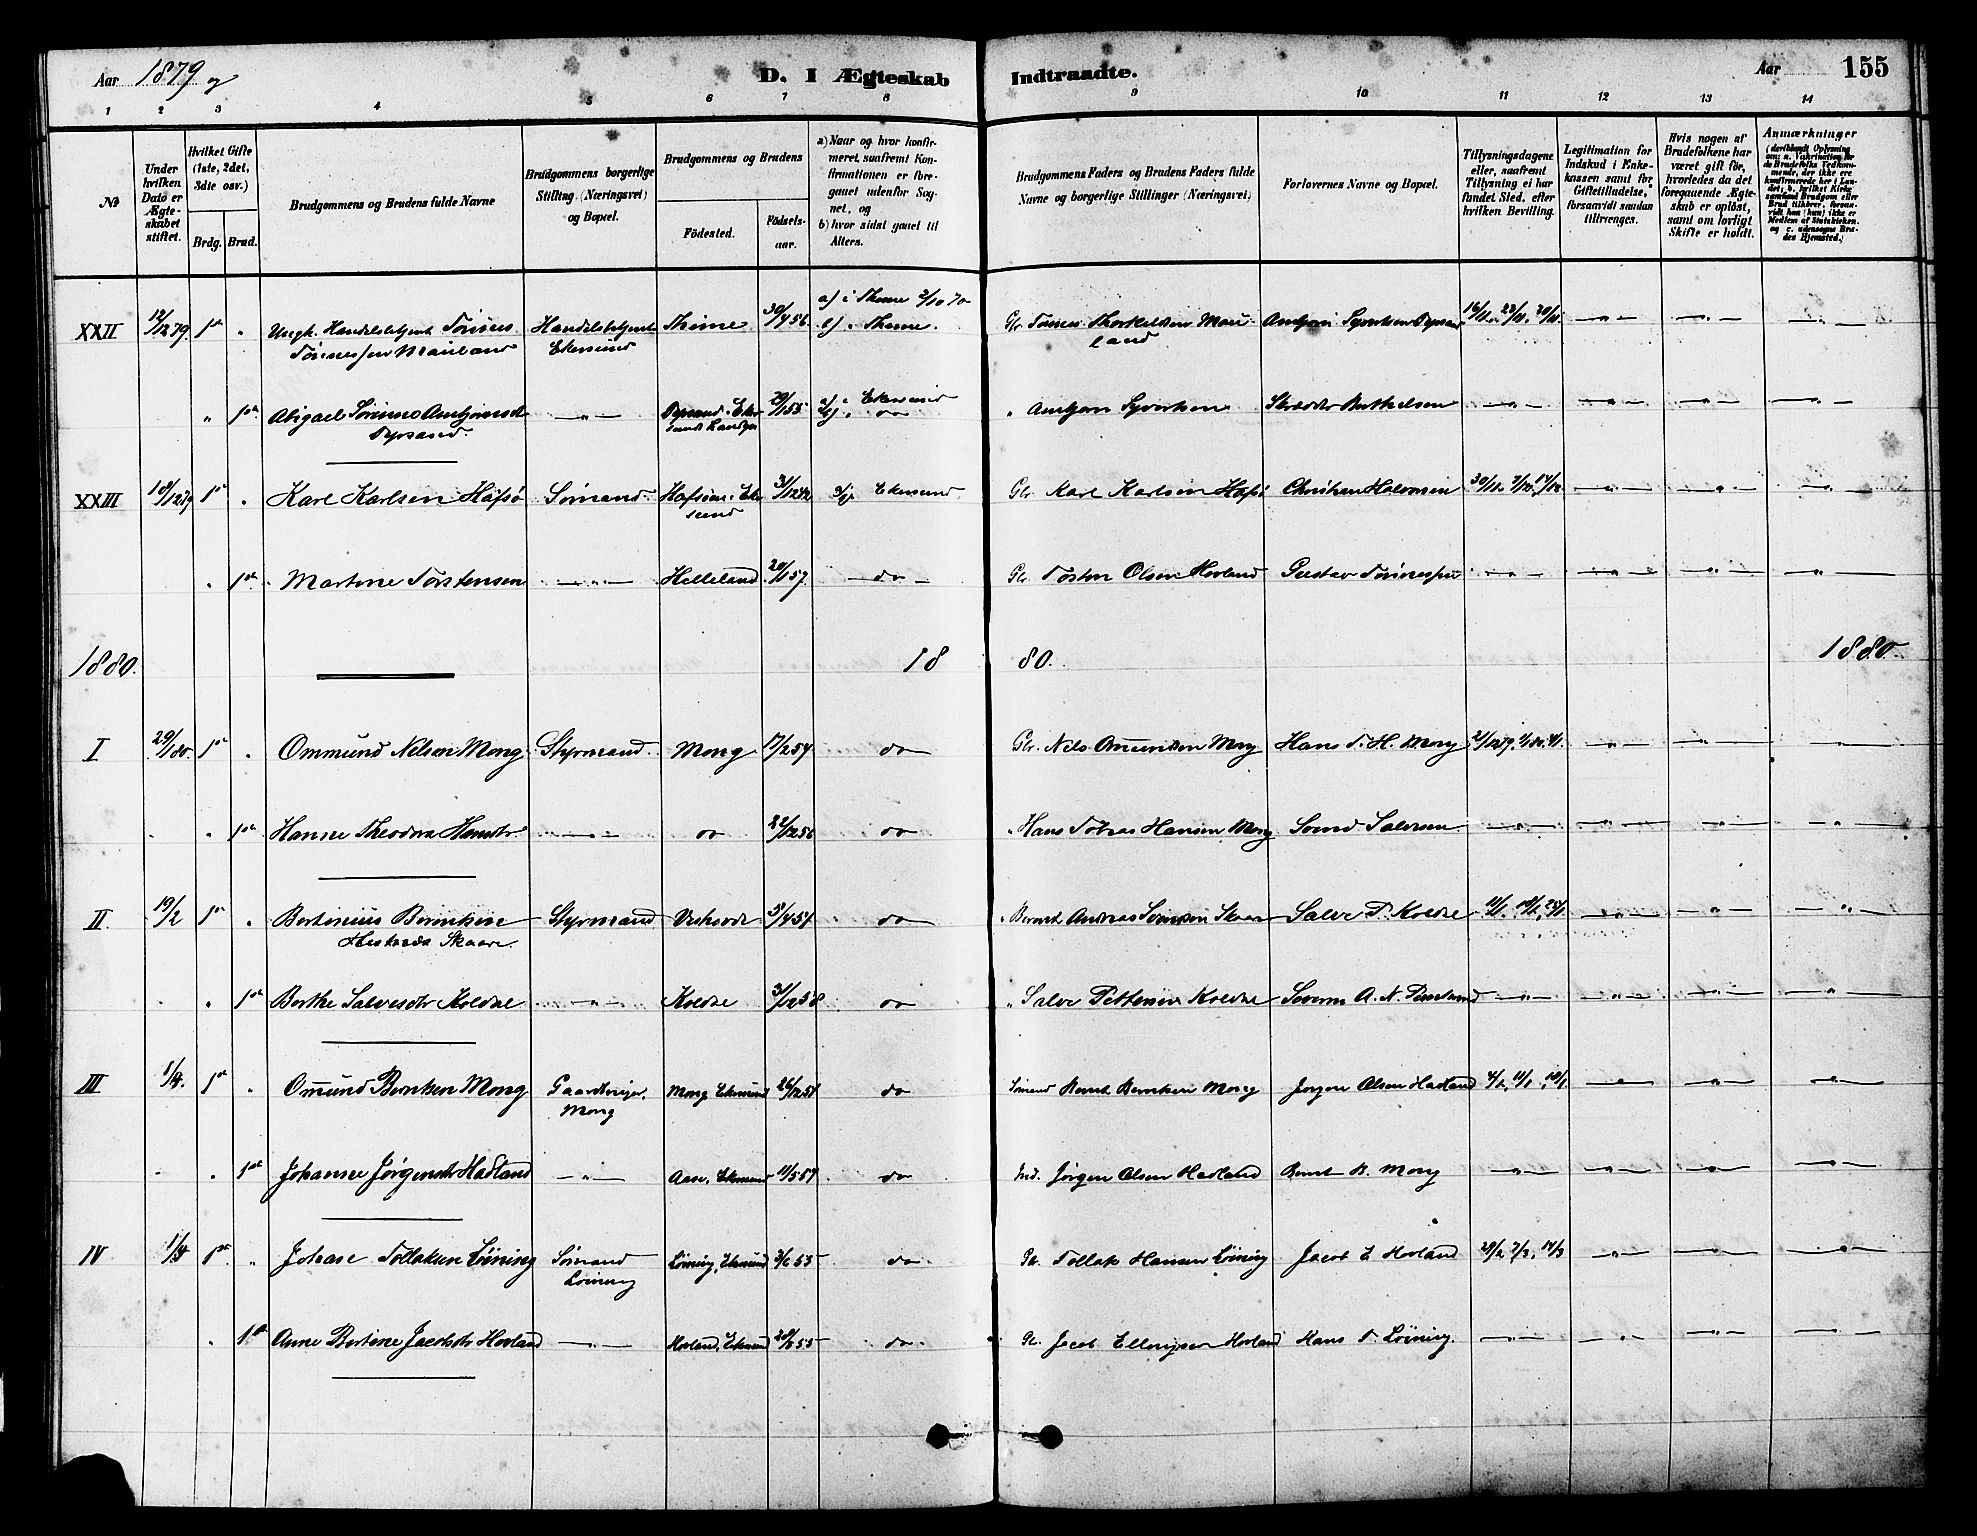 Aar 1879 og D. I Ægteskab Indtraadte. Aar 155
1 2 3 4 5 6 7 8 9 10 11 12 13 14
No
Under hvilken Dato er Ægteskabet stiftet.
Hvilket Gifte (1ste, 2det, 3die osv.)
Brdg. Brud.
Brudgommens og Brudens fulde Navne
Brudgommens borgerlige Stilling (Næringsvei) og Bopæl.
Brudgommens og Brudens
Födested. Födselsaar.
a) Naar og hvor konfirmeret, saafremt Konfirmationen er foregaaet udenfor Sognet, og
b) hvor sidst gaaet til Alters.
Brudgommens Faders og Brudens Faders fulde Navne og borgerlige Stillinger (Næringsvei)
Forlovernes Navne og Bopæl.
Tillysningsdagene eller, saafremt Tillysning ei har fundet Sted, efter hvilken Bevilling.
Legitimation for Indskud i Enkekassen samt for Giftetilladelse, forsaavidt saadan tiltrænges.
Hvis nogen af Brudefolkene har været gift før, hvorledes da det foregaaende Ægteskab er opløst, samt om lovligt Skifte er holdt.
Anmærkninger
XXII 12/12 79 1ste " Ungk. Handelsbetjent Tönnes Handelsbetjent Thime 30/4 56 a) i Thime 2/10 70 Gbr. Tönnes Thorkildsen Maui Amtjörn Syvertsen 16/11, 23/11, 30/11
Tönnessen Mauland Ekersund b) " Thime. land
" 1ste Abigael Amtjörnsdtr 29/1 55 a) i Ekersund " Amtjörn Syvertsen Berthelsen
XXIII 18/12 79 1ste " Karl Karlsen Hafsö Sömand. Hafsöen, Eker 31/12 Ekersund Gbr. Karl Karlsen Hafsö Christian Halvorsen 30/11, 7/12, 14/12
sund
" 1ste Martine Torstensen Helleland 20/1 57 do Gbr. Tosten Olsen Hovland Gustav Tönnessen
1880. 18 80. 1880.
I 29/1 80 1ste " Ommund Nelsen Mong Styrmand. Mong 17/2 54 do Gbr. Nils Omundsen Mong Hans T. H. Mong
" 1ste Hanne Theodora Hansdtr. do 22/12 56 do " Hans Tobias Hansen Mong Svend Salvesen
II 19/2 1ste " Bertinius Berntsen Styrmand 5/4 54 do " Bernt Andreas Skaar Salve P. Koldal 11/1, 18/1, 25/1
Skaare.
" 1ste Berthe Salvesdtr Koldal Koldal 31/12 58 do " Salve Pettersen Koldal Severin A. N.
III 1/4. 1ste " Omund Berntsen Mong Gaardbruger, Mong Ekersund 26/12 54 do Sömand Bernt Berntsen Mong Jörgen Olsen Hadland 4/1, 11/1, 18/1
Mong
" 1ste Johanne Jörgensdtr Hadland Aase, Ekersund 11/5 59 do Ind. Jörgen Olsen Hadland Bernt B. Mong
IV 1/4 1ste " Johan Tollaksen Löining Sömand Löining, Ekersund 3/6 55 do Gbr. Tollak Hansen Löining Jacob E Hovland 29/2, 7/3, 14/3
Löining
" 1ste Anne Bertine Jacobsdtr Hovland Hovland, Ekersund 20/6 55 do Gbr. Jacob Ellingsen Hovland Hans T. Löining.